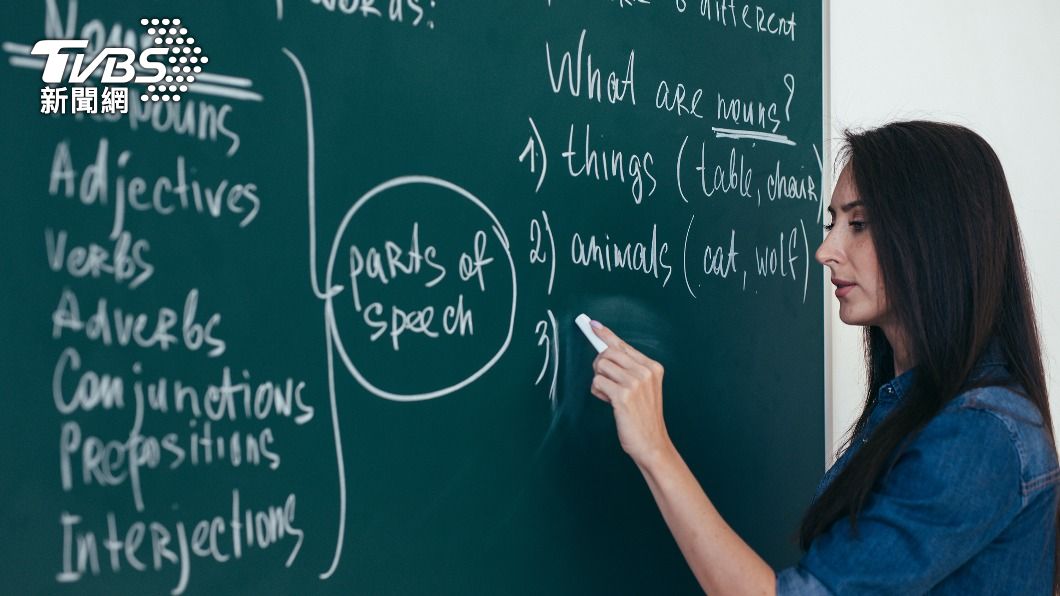 TVBS
新聞網
words:
Nouns
Pronouns
Adjectives
Verbs
Adverbs
Conjunctions
Prepositions
Interjections
parts of
speech
different
What are nouns?
1) things (table, chair)
2) animals (cat, wolf)
3)